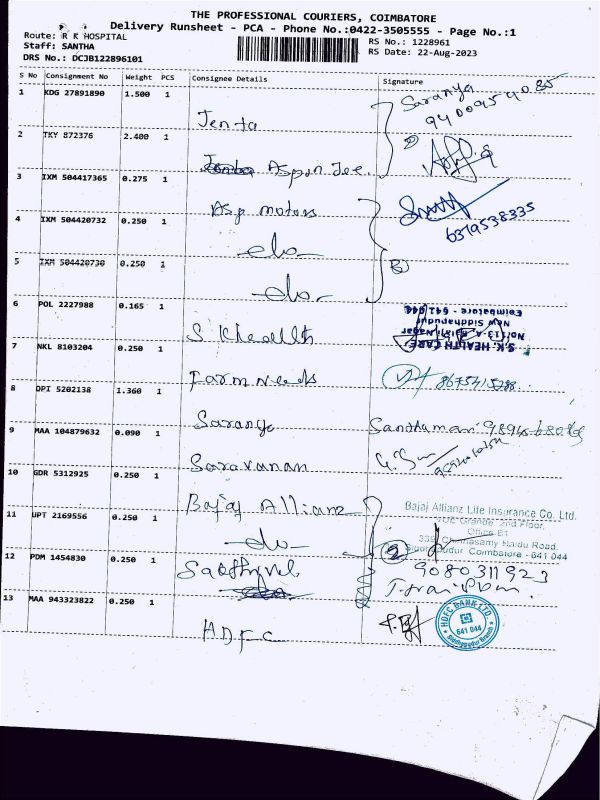 THE PROFESSIONAL COURIERS, COIMBATORE
Delivery Runsheet - PCA - Phone No.:0422-3505555 - Page No.:1
Route: R K HOSPITAL
RS No.: 1228961
Staff: SANTHA
RS Date: 22-Aug-2023
DRS No.: DCJB122896101
S No Consignment No Weight PCS Consignee Details Signature
1 KDG 27891890 1.500 1
Jenta
Saranya
2 TKY 872376 2.400 1
Aspin Jee.
3 IXM 504417365 0.275 1
Asp motors
6319538335
4 IXM 504420732 0.250 1
-do-
5 IXM 504420730 0.250 1
-do-
6 POL 2227988 0.165 1
S K health
S.K. HEALTH CARE
No:113-A, Balaji Nagar
New Siddhapudur
Coimbatore - 641 044
7 NKL 8103204 0.250 1
Farm needs
8675415288
8 OPI 5202138 1.360 1
Saranya
Santhamani
9 MAA 104879632 0.090 1
Saravanan
10 GDR 5312925 0.250 1
Bajaj Allianz
Bajaj Allianz Life Insurance Co. Ltd.
2nd Floor,
Office B1
339, Chinnasamy Naidu Road,
Siddhapudur Coimbatore - 641 044
11 UPT 2169556 0.250 1
-do-
2
12 PDM 1454830 0.250 1
9080311923
13 MAA 943323822 0.250 1
HDFC
HDFC BANK LTD
641 044